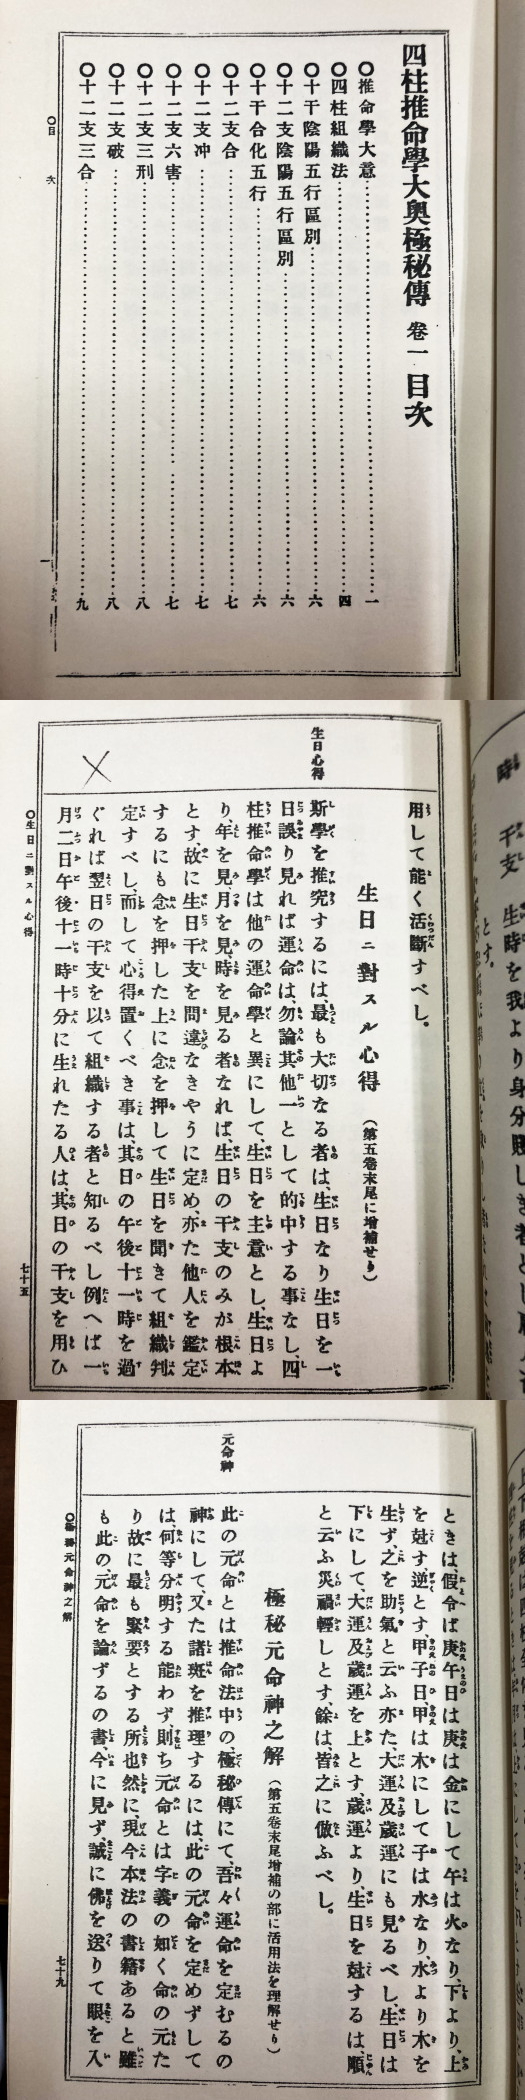 四柱推命學大奧極秘傳 卷一 目次
〇推命學大意 一
〇四柱組織法 四
〇十干陰陽五行區別 六
〇十二支陰陽五行區別 六
〇十干合化五行 六
〇十二支合 七
〇十二支冲 七
〇十二支六害 七
〇十二支三刑 八
〇十二支破 八
〇十二支三合 九
〇目次
一
生日心得
用して能く活斷すべし。
生日ニ對スル心得 (第五卷末尾に增補せり)
斯學を推究するには、最も大切なる者は、生日なり生日を一
日誤り見れば運命は、勿論其他一として的中する事なし、四
柱推命學は他の運命學と異にして、生日を主意とし、生日よ
り、年を見月を見、時を見る者なれば、生日の干支のみが根本
とす故に生日干支を間違なきやうに定め、亦た他人を鑑定
するにも念を押した上に念を押して生日を聞きて組織判
定すべし、而して心得置くべき事は、其日の午後十一時を過
ぐれば翌日の干支を以て組織する者と知るべし例へば一
月二日午後十一時十分に生れたる人は、其日の干支を用ひ
〇生日ニ對スル心得
七十五
元命神
ときは、假令ば庚午日は庚は金にして午は火なり、下より、上
を尅す逆とす、甲子日、甲は木にして子は水なり、水より木を
生ず、之を助氣と云ふ亦た、大運及歲運にも見るべし、生日は
下にして、大運及歲運を上とす、歲運より、生日を尅するは、順
と云ふ災禍輕しとす、餘は、皆之に倣ふべし。
極秘元命神之解 (第五卷末尾增補の部に活用法を理解せり)
此の元命とは推命法中の極秘傳にて、吾々運命を定むるの
神にして、又た諸斑を推理するには、此の元命を定めずして
は、何等分明する能わず則ち元命とは字義の如く命の元た
り故に最も緊要とする所也然に、現今本法の書籍あると雖
も此の元命を論ずるの書、今に見ず誠に佛を送りて眼を入
元命神之解
七十九